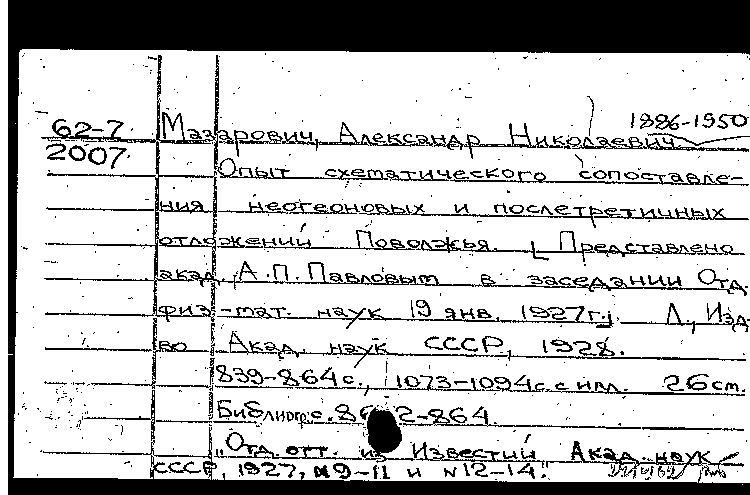 1886-1950
62-7 Мазарович, Александр Николаевич
2007 Опыт схематического сопоставле-
ния неогеновых и послетретичных
отложений Поволжья. [Представлено
акад. А.П. Павловым в заседании Отд.
физ-мат. наук 19 янв. 1927г.] Л., Изд-
во Акад. наук СССР, 1928.
839-864с., 1073-1094с. с илл. 26см.
Библиогр.с. 862-864.
"Отд. отт. из Известий Акад. наук
СССР, 1927, №9-11 и №12-14".